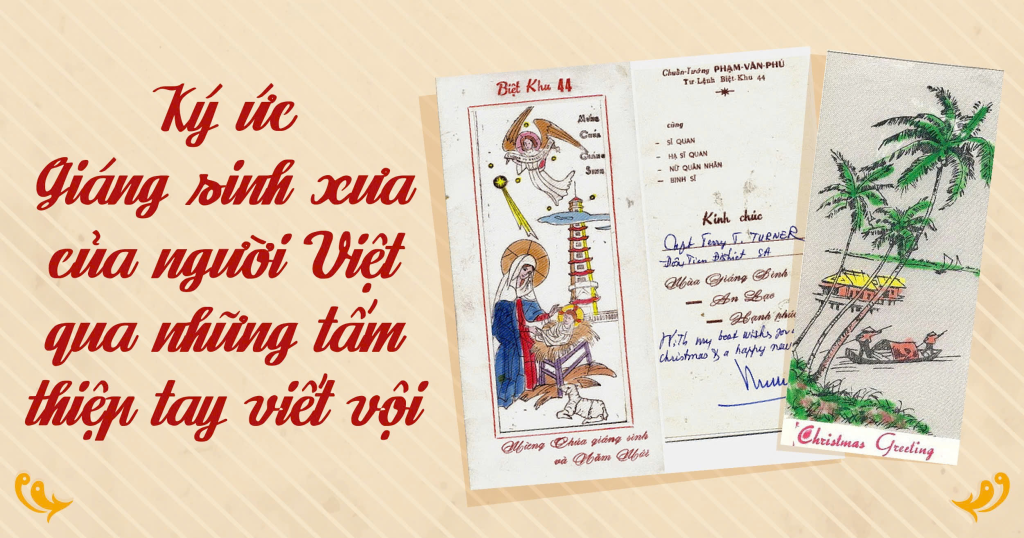 Ký ức
Giáng sinh xưa
của người Việt
qua những tấm
thiệp tay viết vội
Biệt Khu 44
Mừng
Chúa
Giáng
Sinh
Mừng Chúa giáng sinh
và Năm Mới
Chuẩn-Tướng PHẠM-VĂN-PHÚ
Tư Lệnh Biệt-Khu 44
cùng
– SĨ QUAN
– HẠ SĨ QUAN
– NỮ QUÂN NHÂN
– BINH SĨ
Kính chúc
Capt Terry T. TURNER
District SA
Mùa Giáng Sinh
— An Lạc
— Hạnh phúc
With my best wishes for
christmas & a happy new
Christmas Greeting